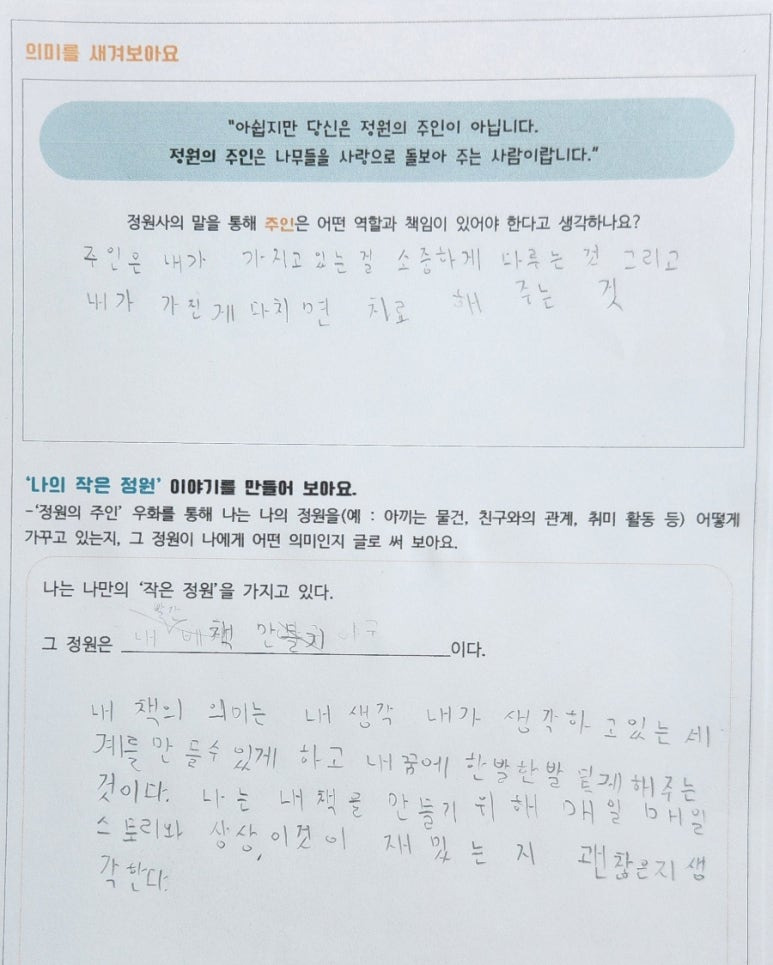 의미를 새겨보아요
"아쉽지만 당신은 정원의 주인이 아닙니다.
정원의 주인은 나무들을 사랑으로 돌보아 주는 사람이랍니다."
정원사의 말을 통해 주인은 어떤 역할과 책임이 있어야 한다고 생각하나요?
주인은 내가 가지고 있는걸 소중하게 다루는 것 그리고
내가 가진 게 다치면 치료 해 주는 것
'나의 작은 정원' 이야기를 만들어 보아요.
-'정원의 주인' 우화를 통해 나는 나의 정원을(예 : 아끼는 물건, 친구와의 관계, 취미 활동 등) 어떻게
가꾸고 있는지, 그 정원이 나에게 어떤 의미인지 글로 써 보아요.
나는 나만의 '작은 정원'을 가지고 있다.
그 정원은 내 책 이다.
내 책의 의미는 내 생각 내가 생각하고있는 세
계를 만들수있게 하고 내꿈에 한발한발 딛게해주는
것이다. 나는 내책을 만들기 위해 매일 매일
스토리와 상상, 이것이 재밌는지 괜찮은지 생
각한다.